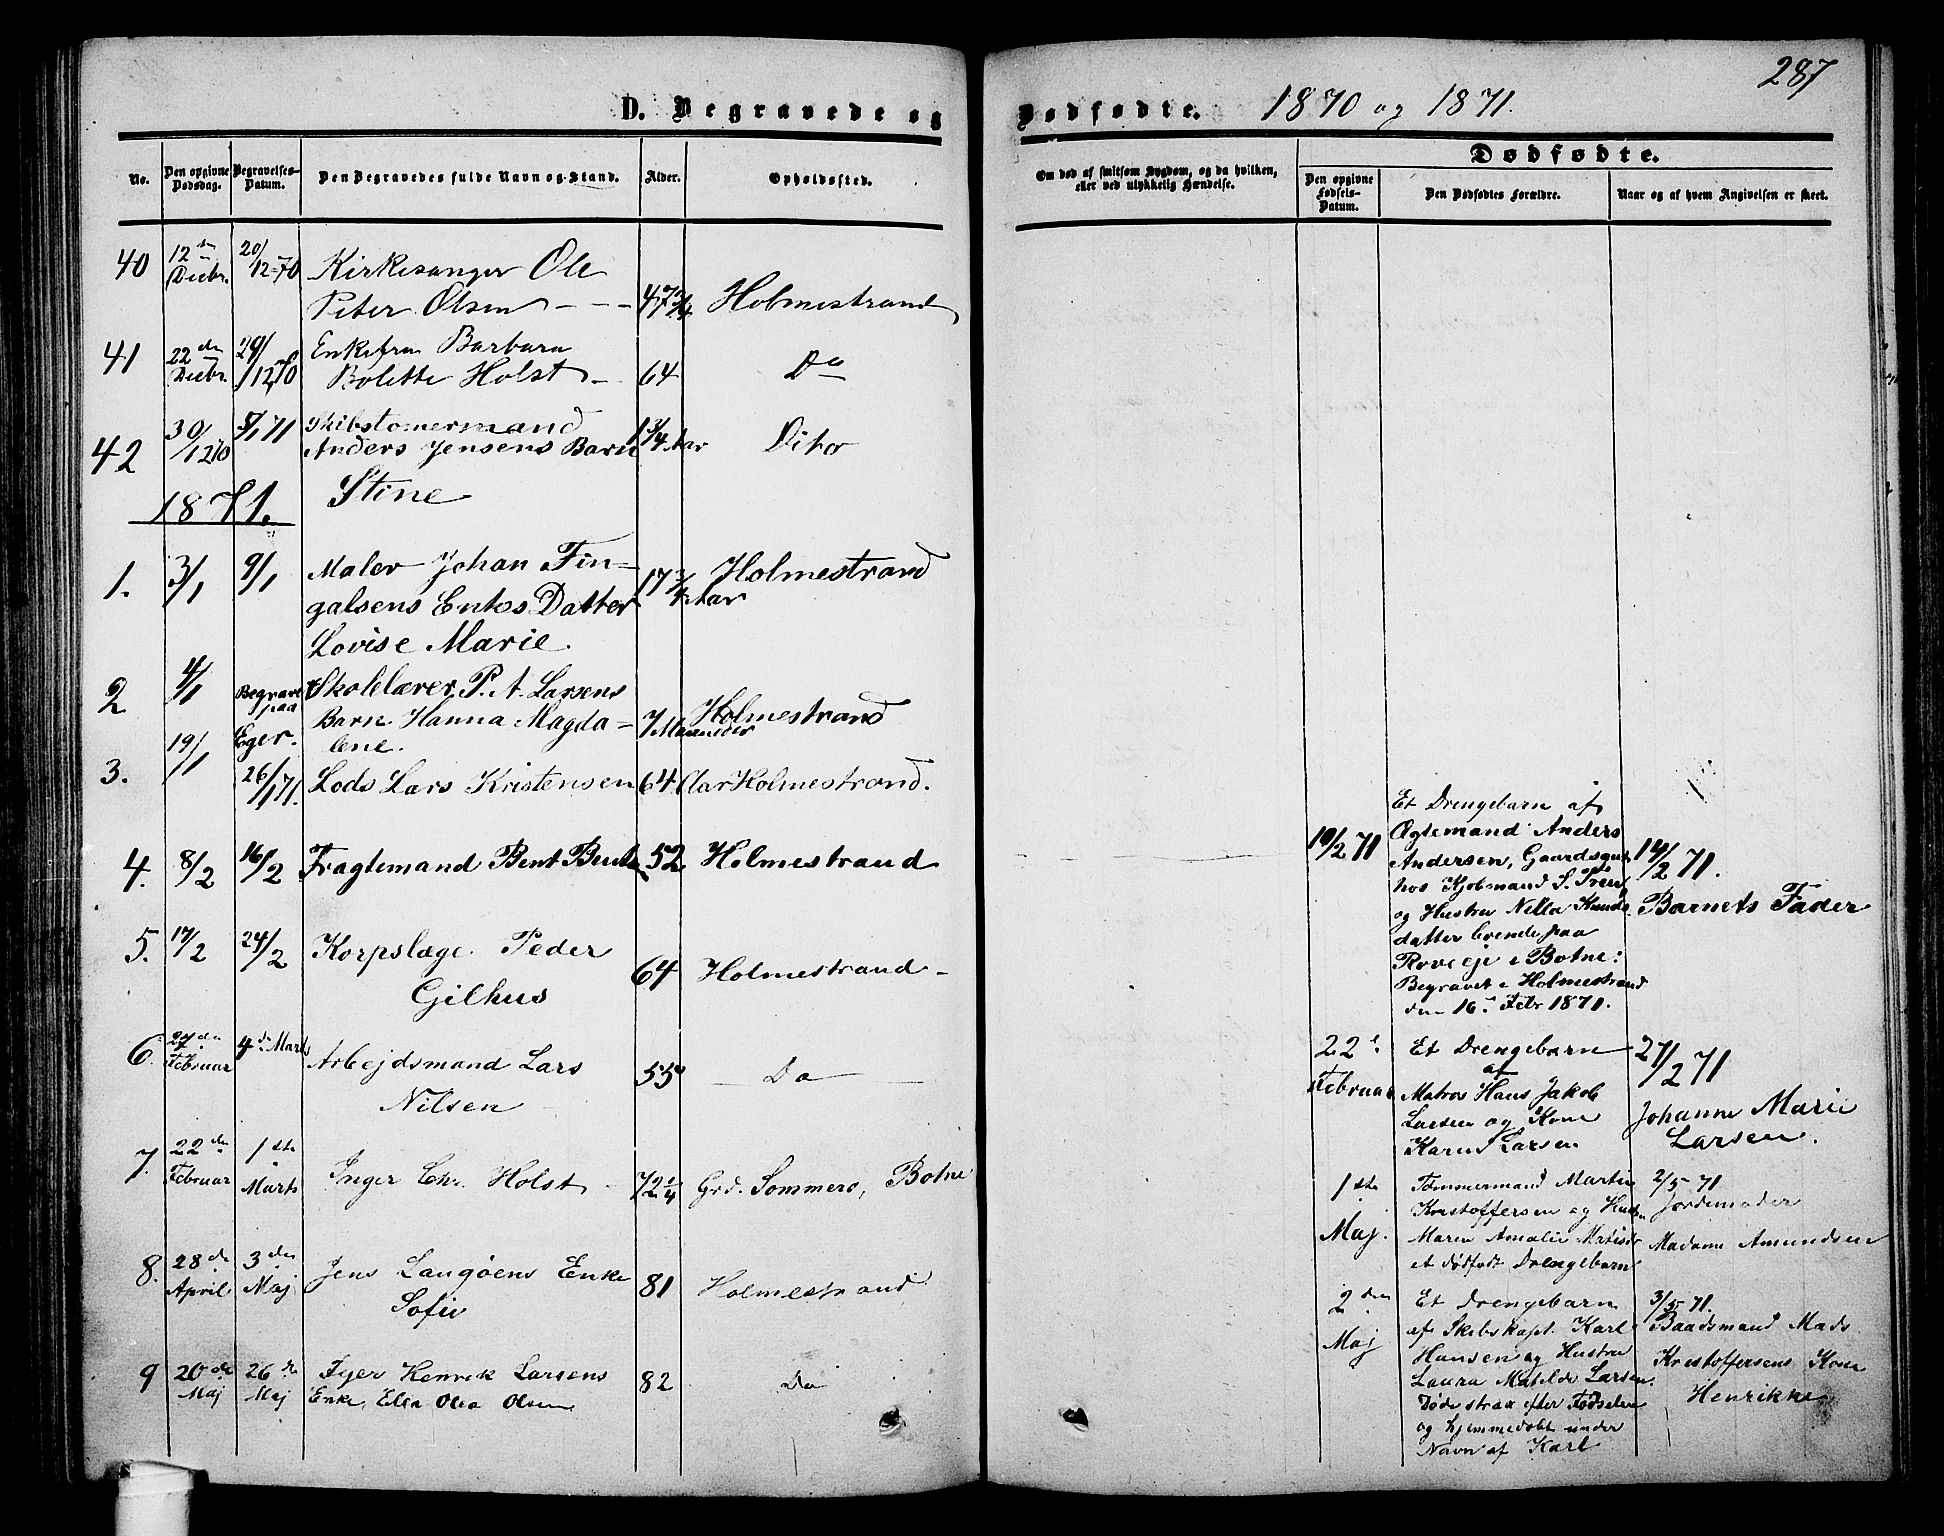 287
D. Begravede og Dødfødte. 1870 og 1871.
No.
Den opgivne Dødsdag.
Begravelses-Datum.
Den Begravedes fulde Navn og Stand.
Alder.
Opholdssted.
Om død af smitsom Sygdom, og da hvilken,
eller ved ulykkelig Hændelse.
Dødfødte.
Den opgivne Fødsels-Datum.
Den Dødfødtes Forældre.
Naar og af hvem Angivelsen er skeet.
40 12te Decbr. 20/12-70 Kirkesanger Ole
Peter Olsen 47 3/4 Holmestrand
41 22den Decbr. 29/12 70 Enkefru Barbara
Bolette Holst 64 Do
42 30/12 70 5/1 71 Skibstømermand
Anders Jensens Barn 1 3/4 Aar Dito
Stine
1871.
1. 3/1 9/1 Maler Johan Fin-
galsens Enkes Datter 17 3/4 Aar Holmestrand
Lovise Marie.
2 4/1 Begravet paa Eger. Skolelærer P. A. Larsens
Barn Hanna Magda- 7 Maaneder Holmestrand
lene.
3. 19/1 26/1 71. Lods Lars Kristensen 64 Aar Holmestrand.
4. 8/2 16/2 Fragtemand Bent 52 Holmestrand
5. 17/2 24/2 Korpslæge Peder
Gilhus 64 Holmestrand
6. 27de Februar 4de Marts Arbejdsmand Lars
Nilsen 55 Do
7. 22de Februar 1ste Marts Inger Chr. Holst 72 1/4 Grd. Sommerø, Botne
8. 28de April 3die Maj Jens Langøens Enke
Sofie 81 Holmestrand
9 20de Maj 26de Maj Henrik Larsens
Enke, Ellea Olea Olsen 82 Do
10/2 71
Et Drengebarn af
Ægtemand Anders
Andersen, Gaardsgut
hos Kjøbmand S.
og Hustru Nilla Knuds
datter boende paa
Roveeje i Botne:
Begravet i Holmestrand
den 16. Febr 1871.
14/2 71.
Barnets Fader
22. Februar
Et Drengebarn
af
Matros Hans Jakob
Larsen og Kone
Karen Larsen
27/2 71
Johanne Marie
Larsen.
1ste Maj.
Tømmermand Martin
Kristoffersen og Hustru
Maren Amalie
et dødfødt Drengebarn
2/5 71
Jordemoder
Madame Amundsen
2den Maj
Et Drengebarn
af Skibskapt. Karl
Hansen og Hustru
Laura Matilde Larsen.
Døde strax efter Fødselen
og hjemmedøbt under
Navn af Karl
3/5 71.
Baadsmand Mads
Kristoffersens Kone
Henrikke